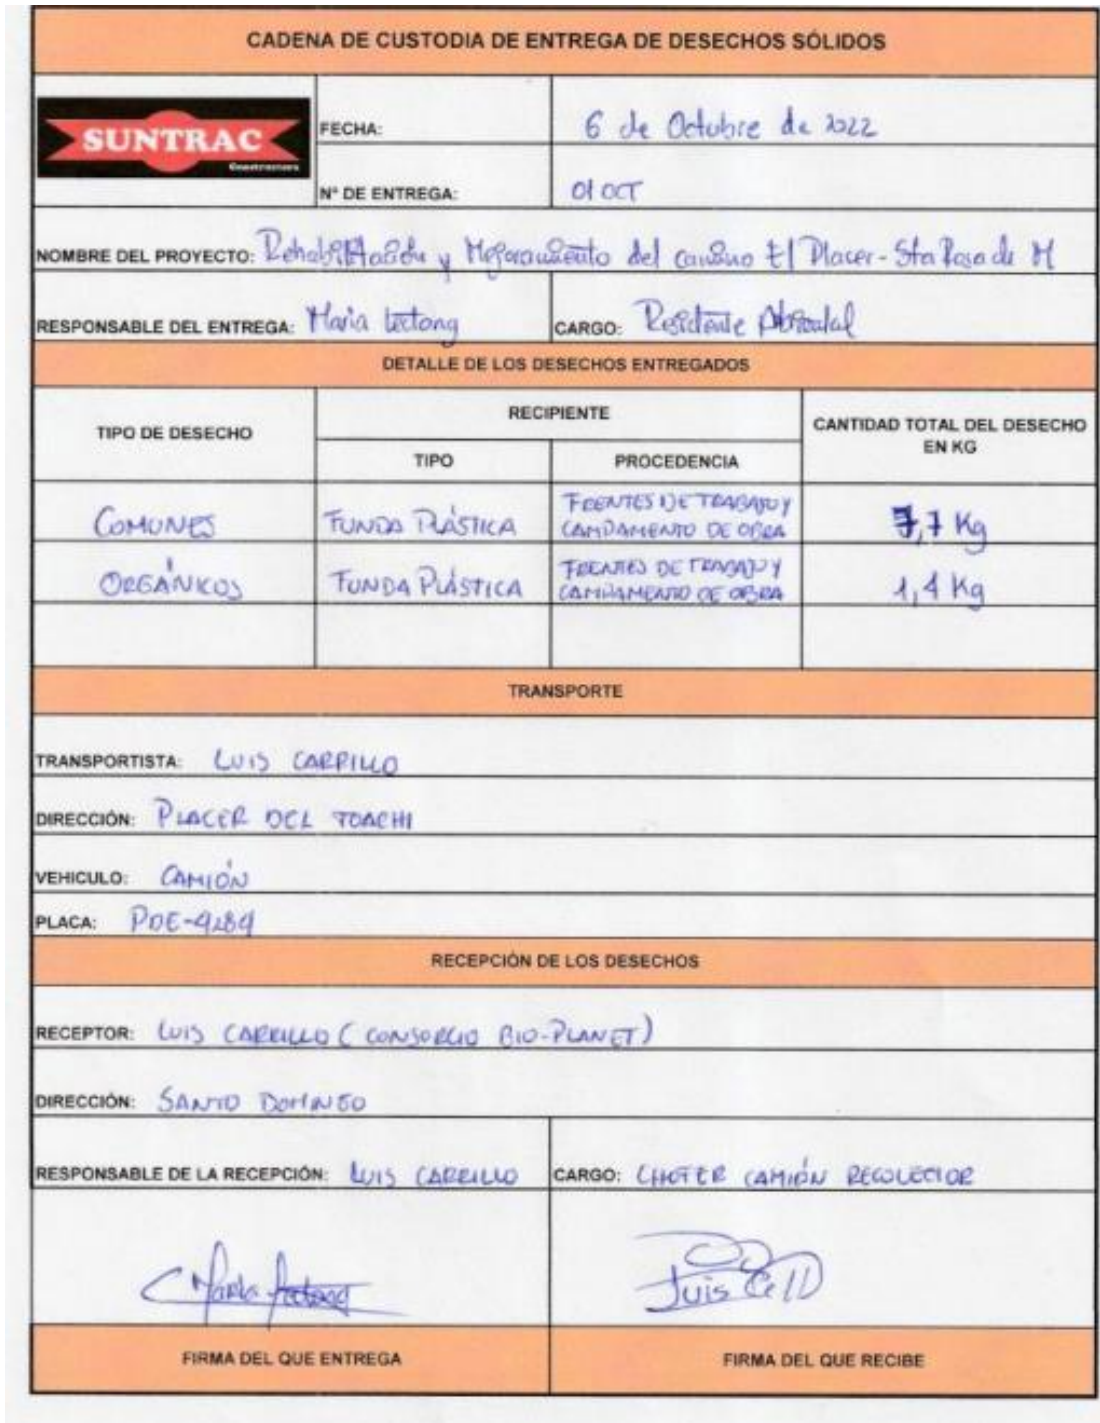 CADENA DE CUSTODIA DE ENTREGA DE DESECHOS SÓLIDOS
SUNTRAC
Constructora
FECHA: 6 de Octubre de 2022
N° DE ENTREGA: 01 OCT
NOMBRE DEL PROYECTO: Rehabilitación y Mejoramiento del camino El Placer-Sta Rosa de M
RESPONSABLE DEL ENTREGA: Maria Lectong CARGO: Residente Ambiental
DETALLE DE LOS DESECHOS ENTREGADOS
TIPO DE DESECHO RECIPIENTE CANTIDAD TOTAL DEL DESECHO EN KG
TIPO PROCEDENCIA
COMUNES FUNDA PLÁSTICA FRENTES DE TRABAJO Y CAMPAMENTO DE OBRA 7,7 Kg
ORGÁNICOS FUNDA PLÁSTICA FRENTES DE TRABAJO Y CAMPAMENTO DE OBRA 1,4 Kg
TRANSPORTE
TRANSPORTISTA: LUIS CARRILLO
DIRECCIÓN: PLACER DEL TOACHI
VEHICULO: CAMIÓN
PLACA:
RECEPCIÓN DE LOS DESECHOS
RECEPTOR: LUIS CARRILLO (CONSORCIO BIO-PLANET)
DIRECCIÓN: SANTO DOMINGO
RESPONSABLE DE LA RECEPCIÓN: LUIS CARRILLO CARGO: CHOFER CAMIÓN RECOLECTOR
Maria Lectong Luis
FIRMA DEL QUE ENTREGA FIRMA DEL QUE RECIBE